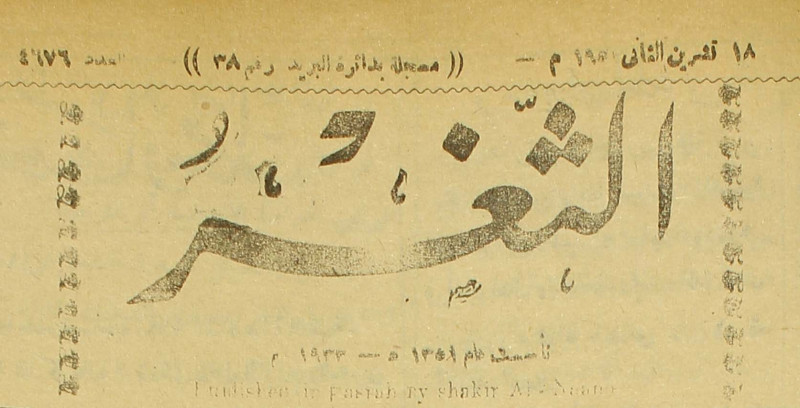 ١٨ تشرين الثاني ١٩٥٠ م – (( مسجلة بدائرة البريد رقم ٣٨ )) العدد ٤٦٧٦
الثَّغْرُ
تأسست عام ١٣٥١ هـ — ١٩٣٣ م
Published in Basrah by Shakir Al-